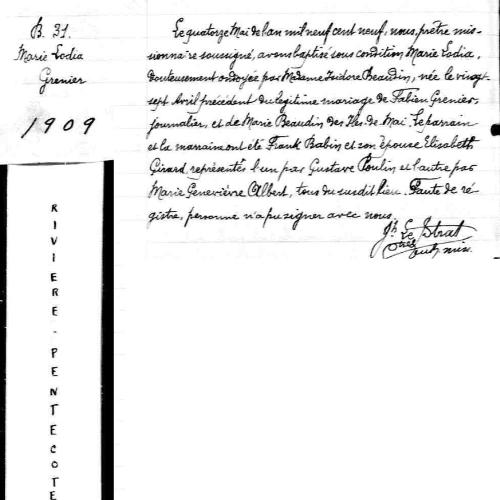 B. 31.
Marie Lodia
Grenier
1909
Le quatorze Mai de l'an mil neuf cent neuf, nous, prêtre mis-
sionnaire soussigné, avons baptisé sous condition Marie Lodia,
douteusement ondoyée par Madame Isidore Beaudin, née le vingt-
sept Avril précédent du légitime mariage de Fabien Grenier,
journalier, et de Marie Beaudin des Iles-de-Mai. Le parrain
et la marraine ont été Frank Babin et son épouse Elisabeth
Girard, représentés l'un par Gustave Poulin et l'autre par
Marie Geneviève Albert, tous du susdit lieu. Faute de ré-
gistre, personne n'a pu signer avec nous.
Jh Le Strat
ptre miss.
RIVIERE-PENTECOTE